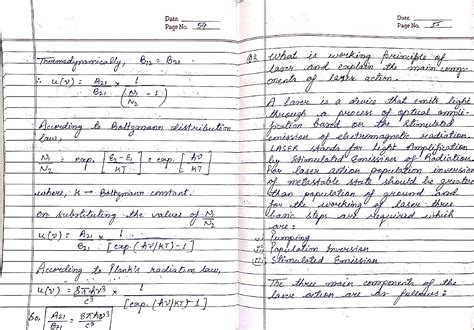 Date.
Page No. 54
Thermodynamically, B12 = B21
∴ u(ν) = A21/B21 × 1/(N1/N2 - 1)
According to Boltzmann distribution
law,
N1/N2 = exp. [E2-E1/KT] = exp. [hν/KT]
where, K → Boltzmann constant.
on substituting the values of N1/N2
u(ν) = A21/B21 × 1/[exp.(hν/KT)-1]
According to Plank's radiation law,
u(ν) = 8πhν3/c3 × 1/[exp.(hν/KT)-1]
So, A21/B21 = 8πhν3/c3
Date.
Page No. 55
What is working principle of
laser and explain the main comp-
onents of laser action.
A laser is a device that emits light
through a process of optical ampli-
fication based on the stimulated
emission of electromagnetic radiation.
LASER stands for Light Amplification
by Stimulated Emission of Radiation.
For laser action population inversion
of metastable state should be greater
than population of ground and
for the working of laser three
basic steps are required which
are :
i) Pumping
ii) Population Inversion
iii) Stimulated Emission
The three main components of the
laser action are as follows :